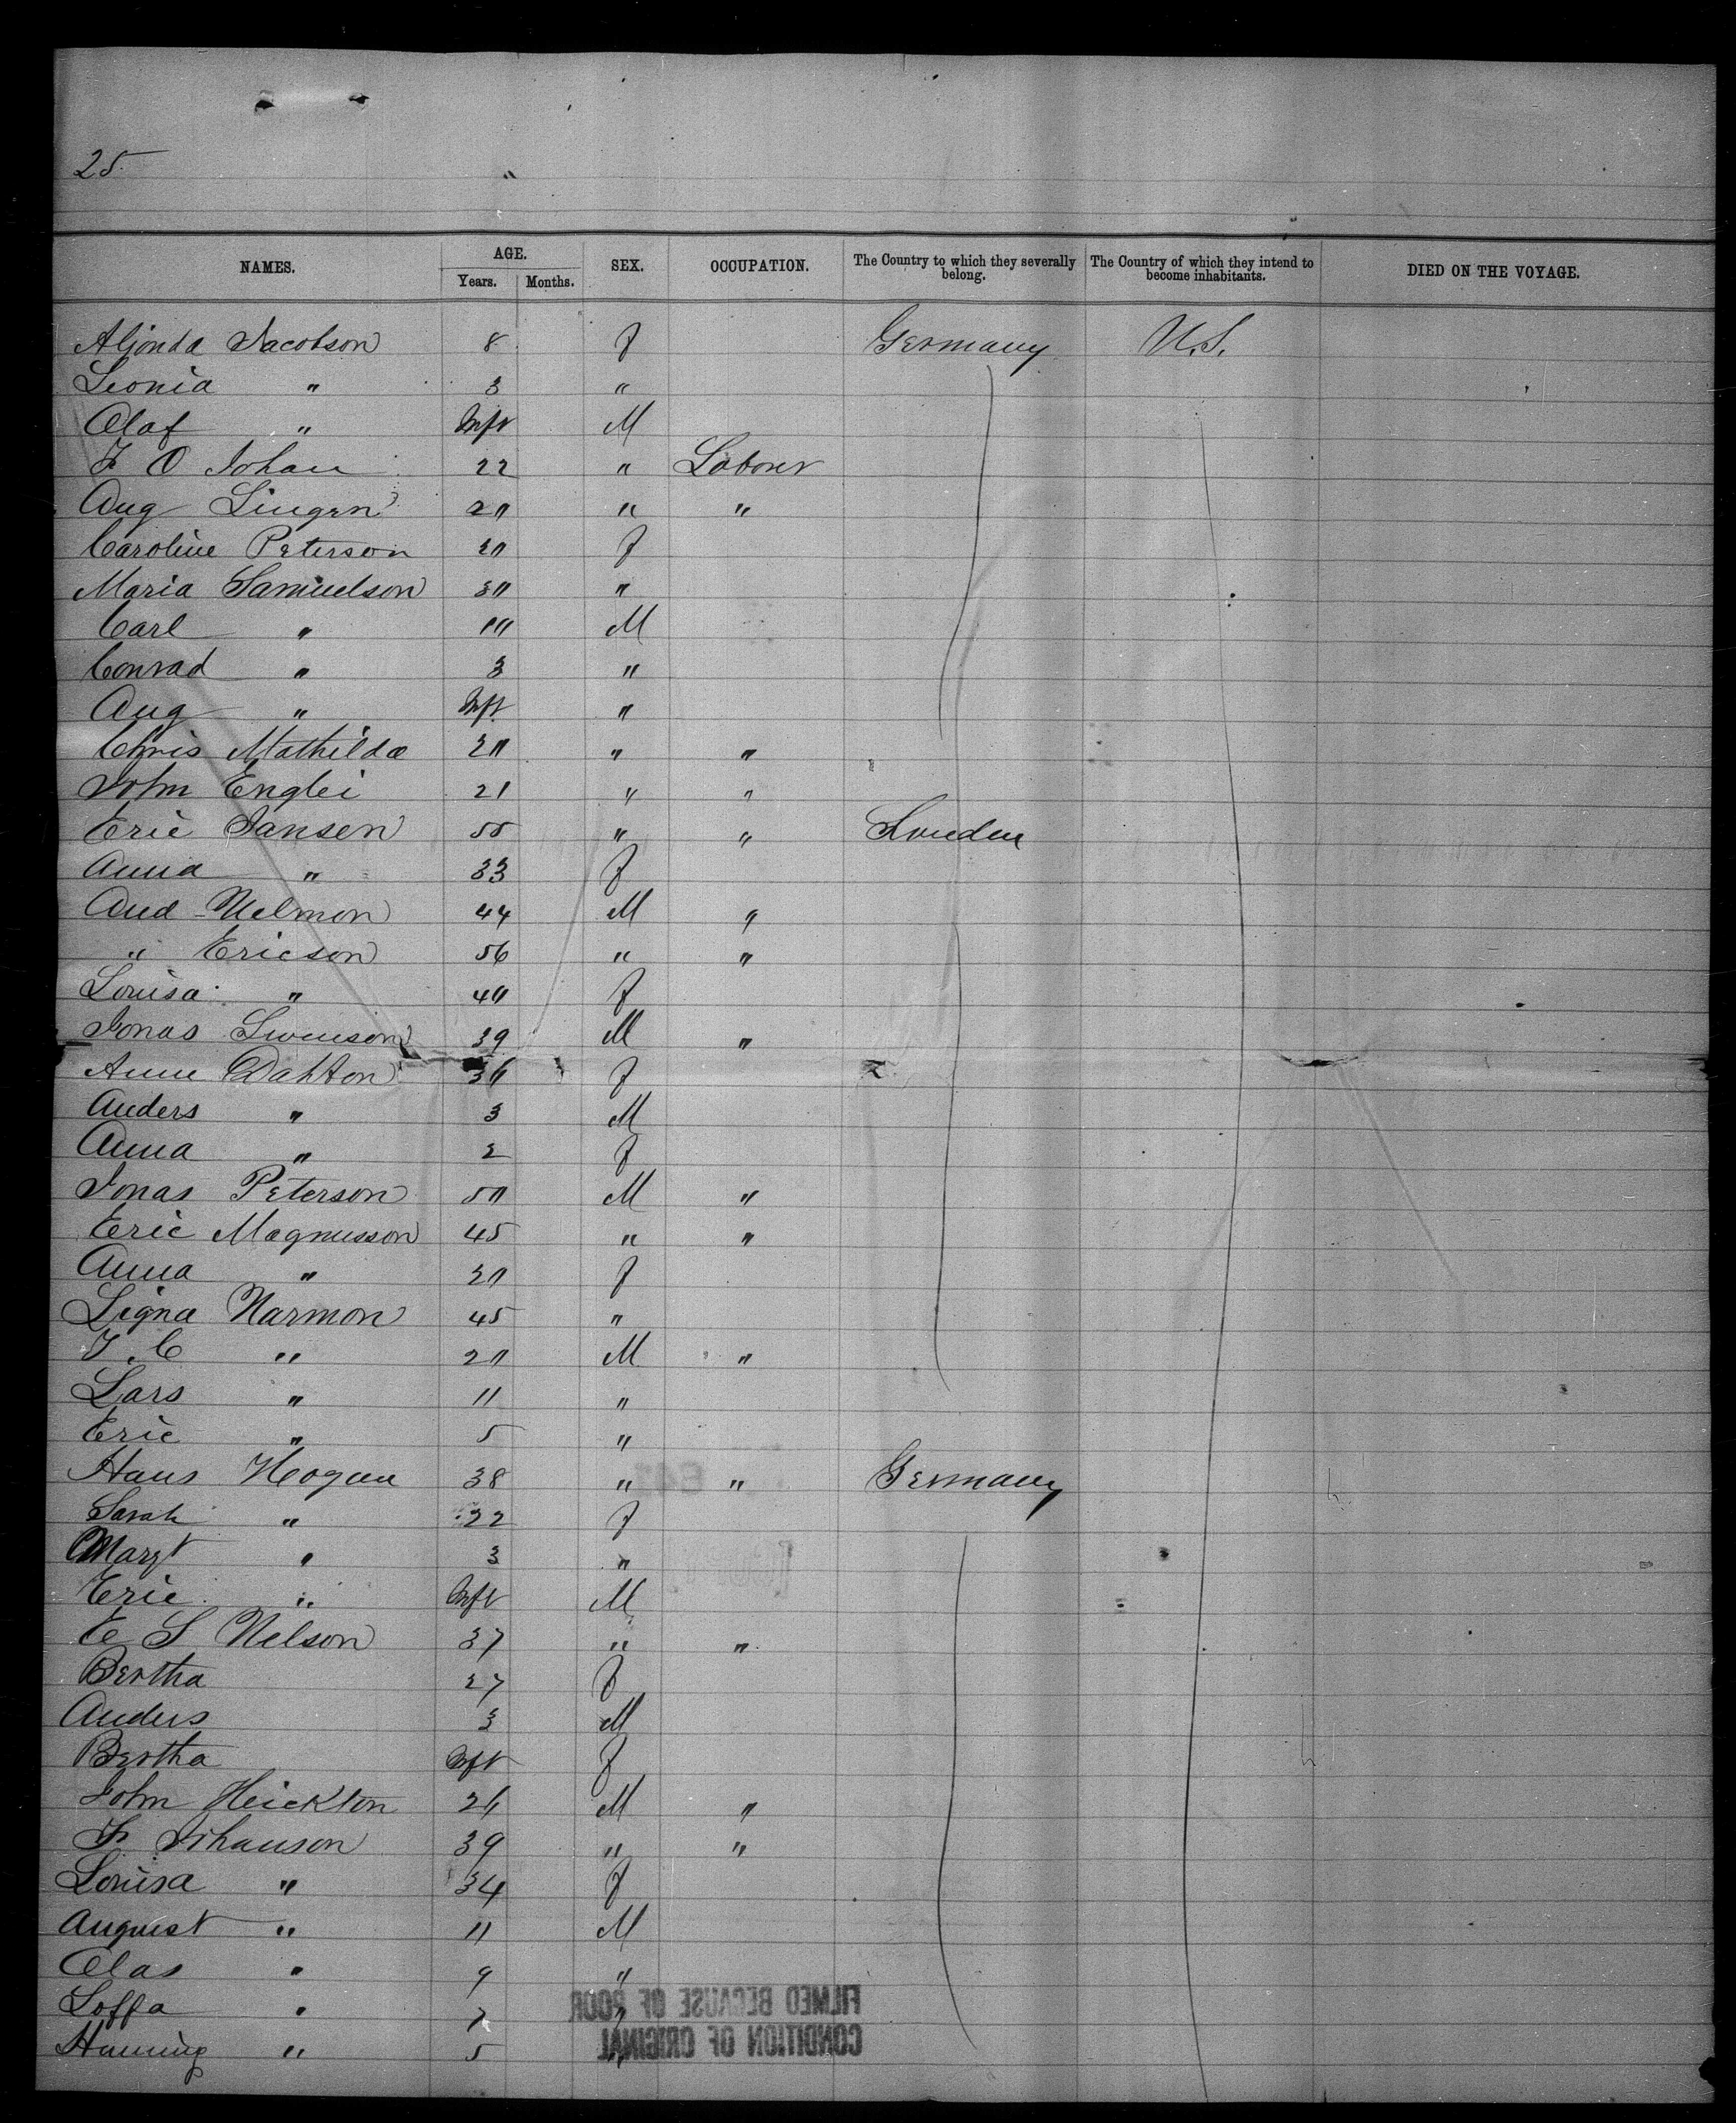 25
NAMES. AGE. SEX. OCCUPATION. The Country to which they severally belong. The Country of which they intend to become inhabitants. DIED ON THE VOYAGE.
Years. Months.
Alionda Jacobson 8 f Germany U.S.
Leonia " 3 "
Olaf " Inft M
F O Johan 22 " Laborer
Aug Lingen 20 " "
Caroline Peterson 20 f
Maria Samuelson 30 "
Carl " 10 M
Conrad " 3 "
Aug " Inft "
Chris Mathilda 20 " "
John Englei 21 " "
Eric Jansen 55 " " Sweden
Anna " 33 f
And Nelmon 44 M "
" Ericson 56 " "
Louisa " 40 f
Jonas Swenson 39 M "
Anne Dahton 30 f
Anders " 3 M
Anna " 2 f
Jonas Peterson 50 M "
Eric Magnusson 45 " "
Anna " 20 f
Signa Narmon 45 "
J. C " 20 M "
Lars " 11 "
Eric " 5 "
Hans Hogan 38 " " Germany
Sarah " 22 f
Margt " 3 "
Eric " Inft M
E S Nelson 37 " "
Bertha 27 f
Anders 3 M
Bertha Inft f
John Heickton 26 M "
F. Johanson 39 " "
Louisa " 34 f
August " 11 M
Olas " 9 "
Soffa " 7 "
Hanning " 5 "
FILMED BECAUSE OF POOR
CONDITION OF ORIGINAL